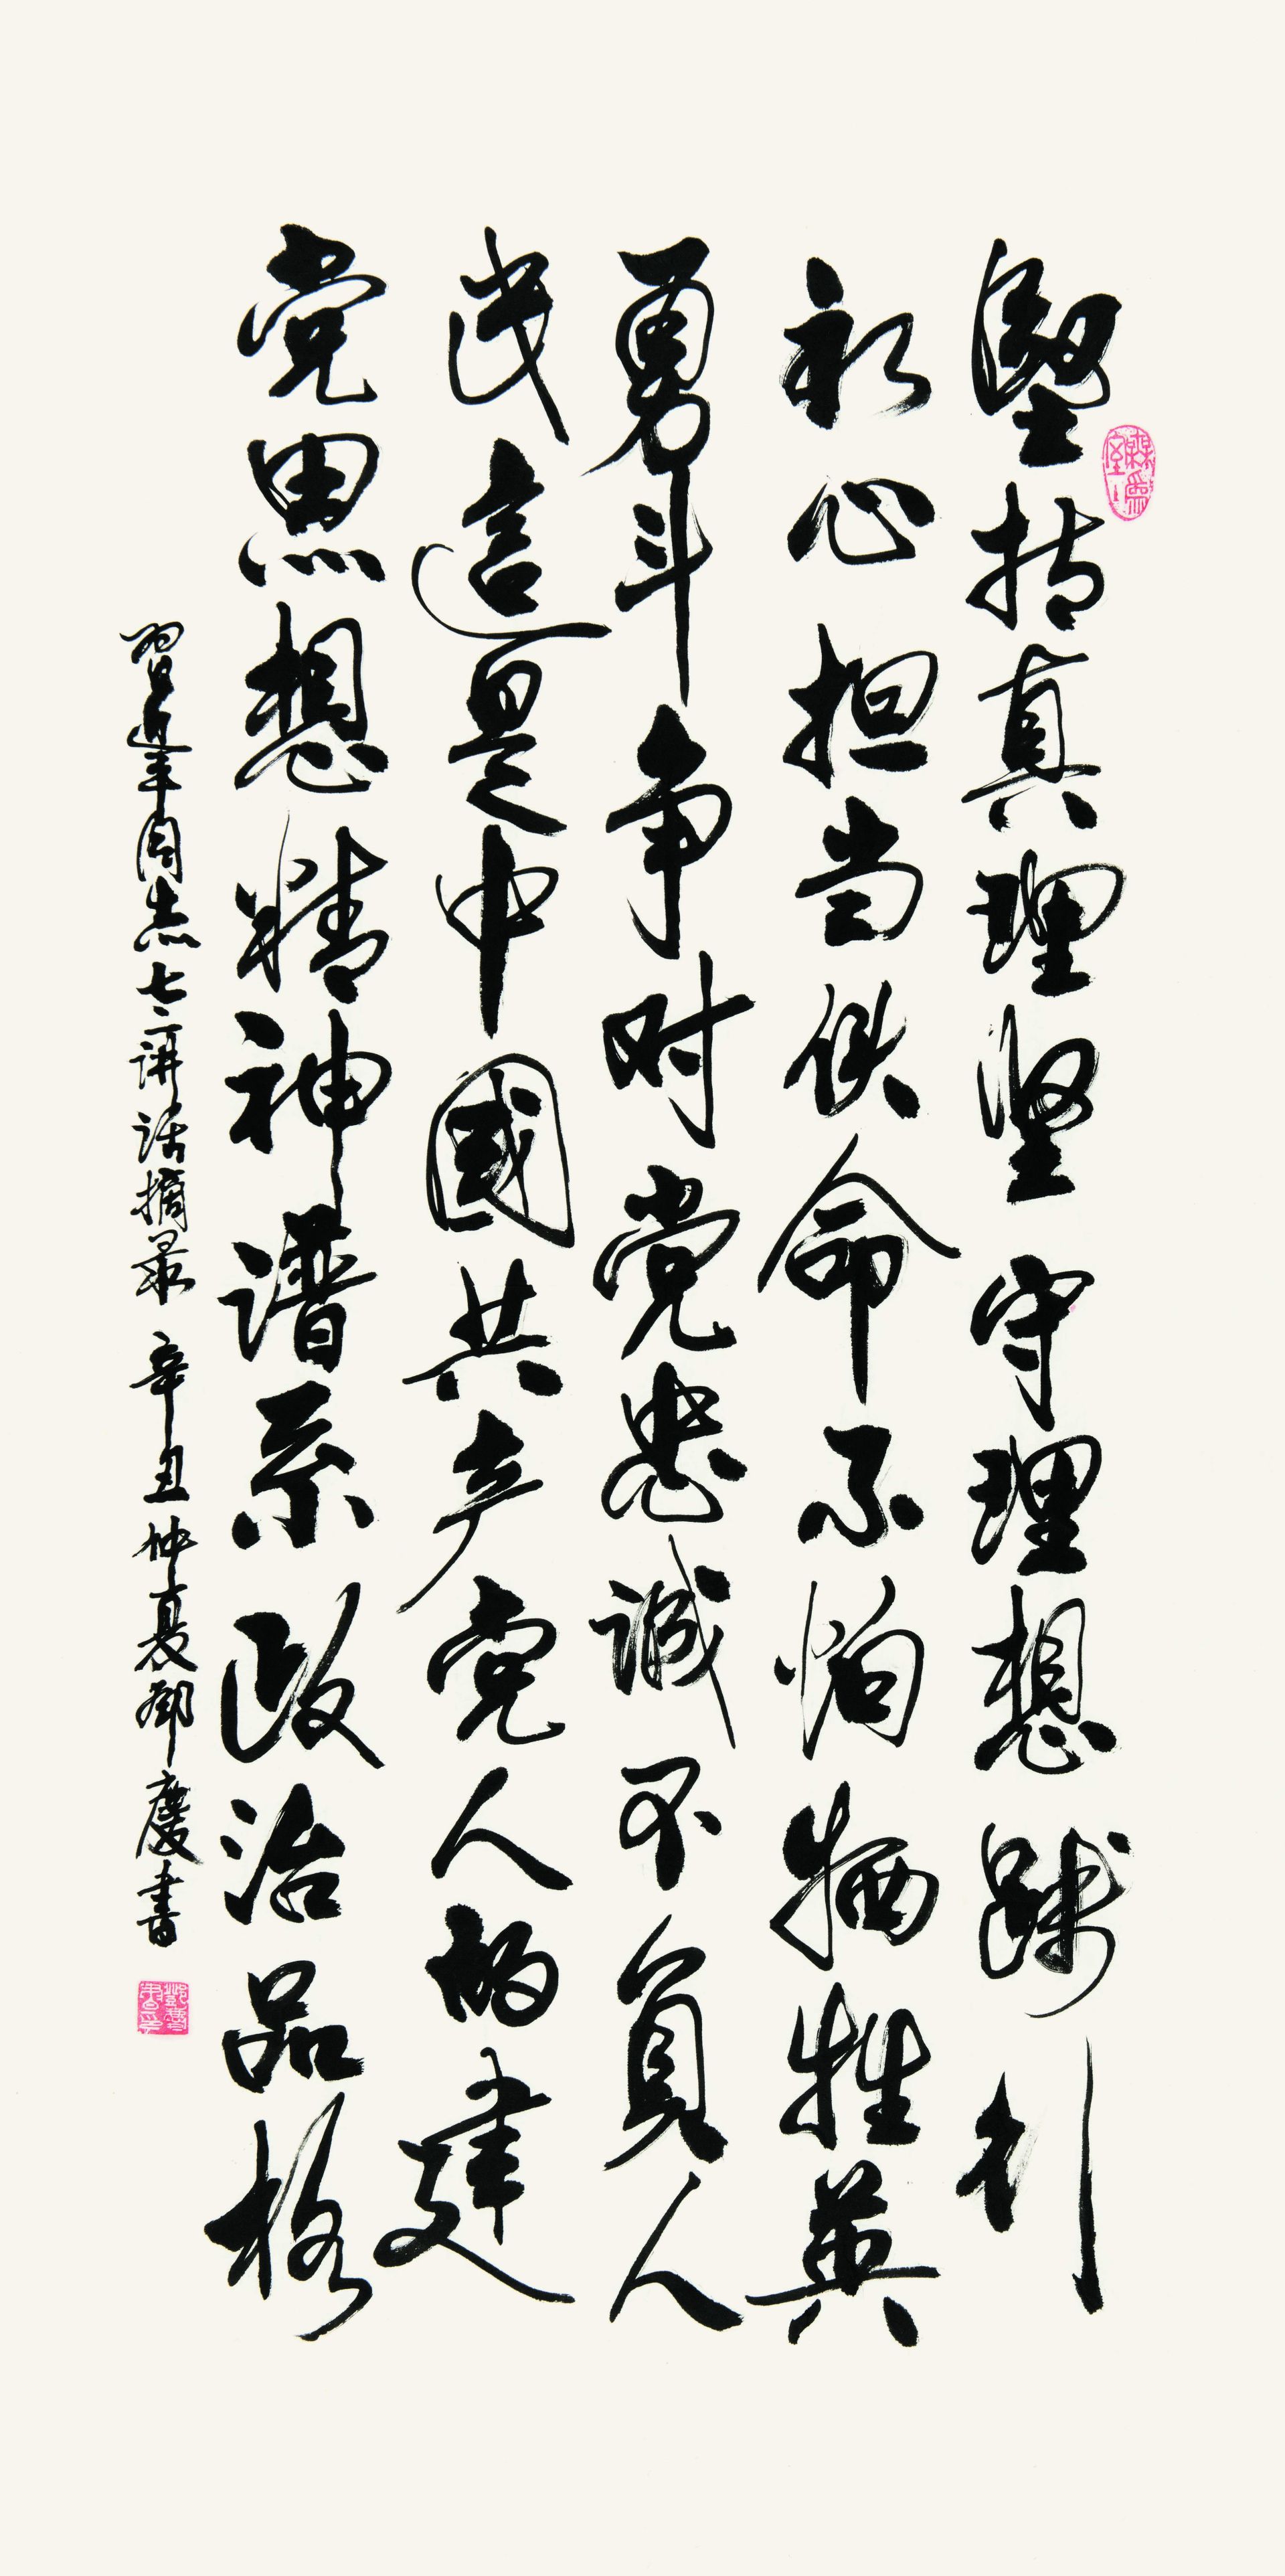 坚持真理坚守理想践行
初心担当使命不怕牺牲英
勇斗争对党忠诚不負人
民這是中國共产党人的建
党思想精神谱系政治品格
習近平同志七一讲话摘录 辛丑仲夏鄧慶書